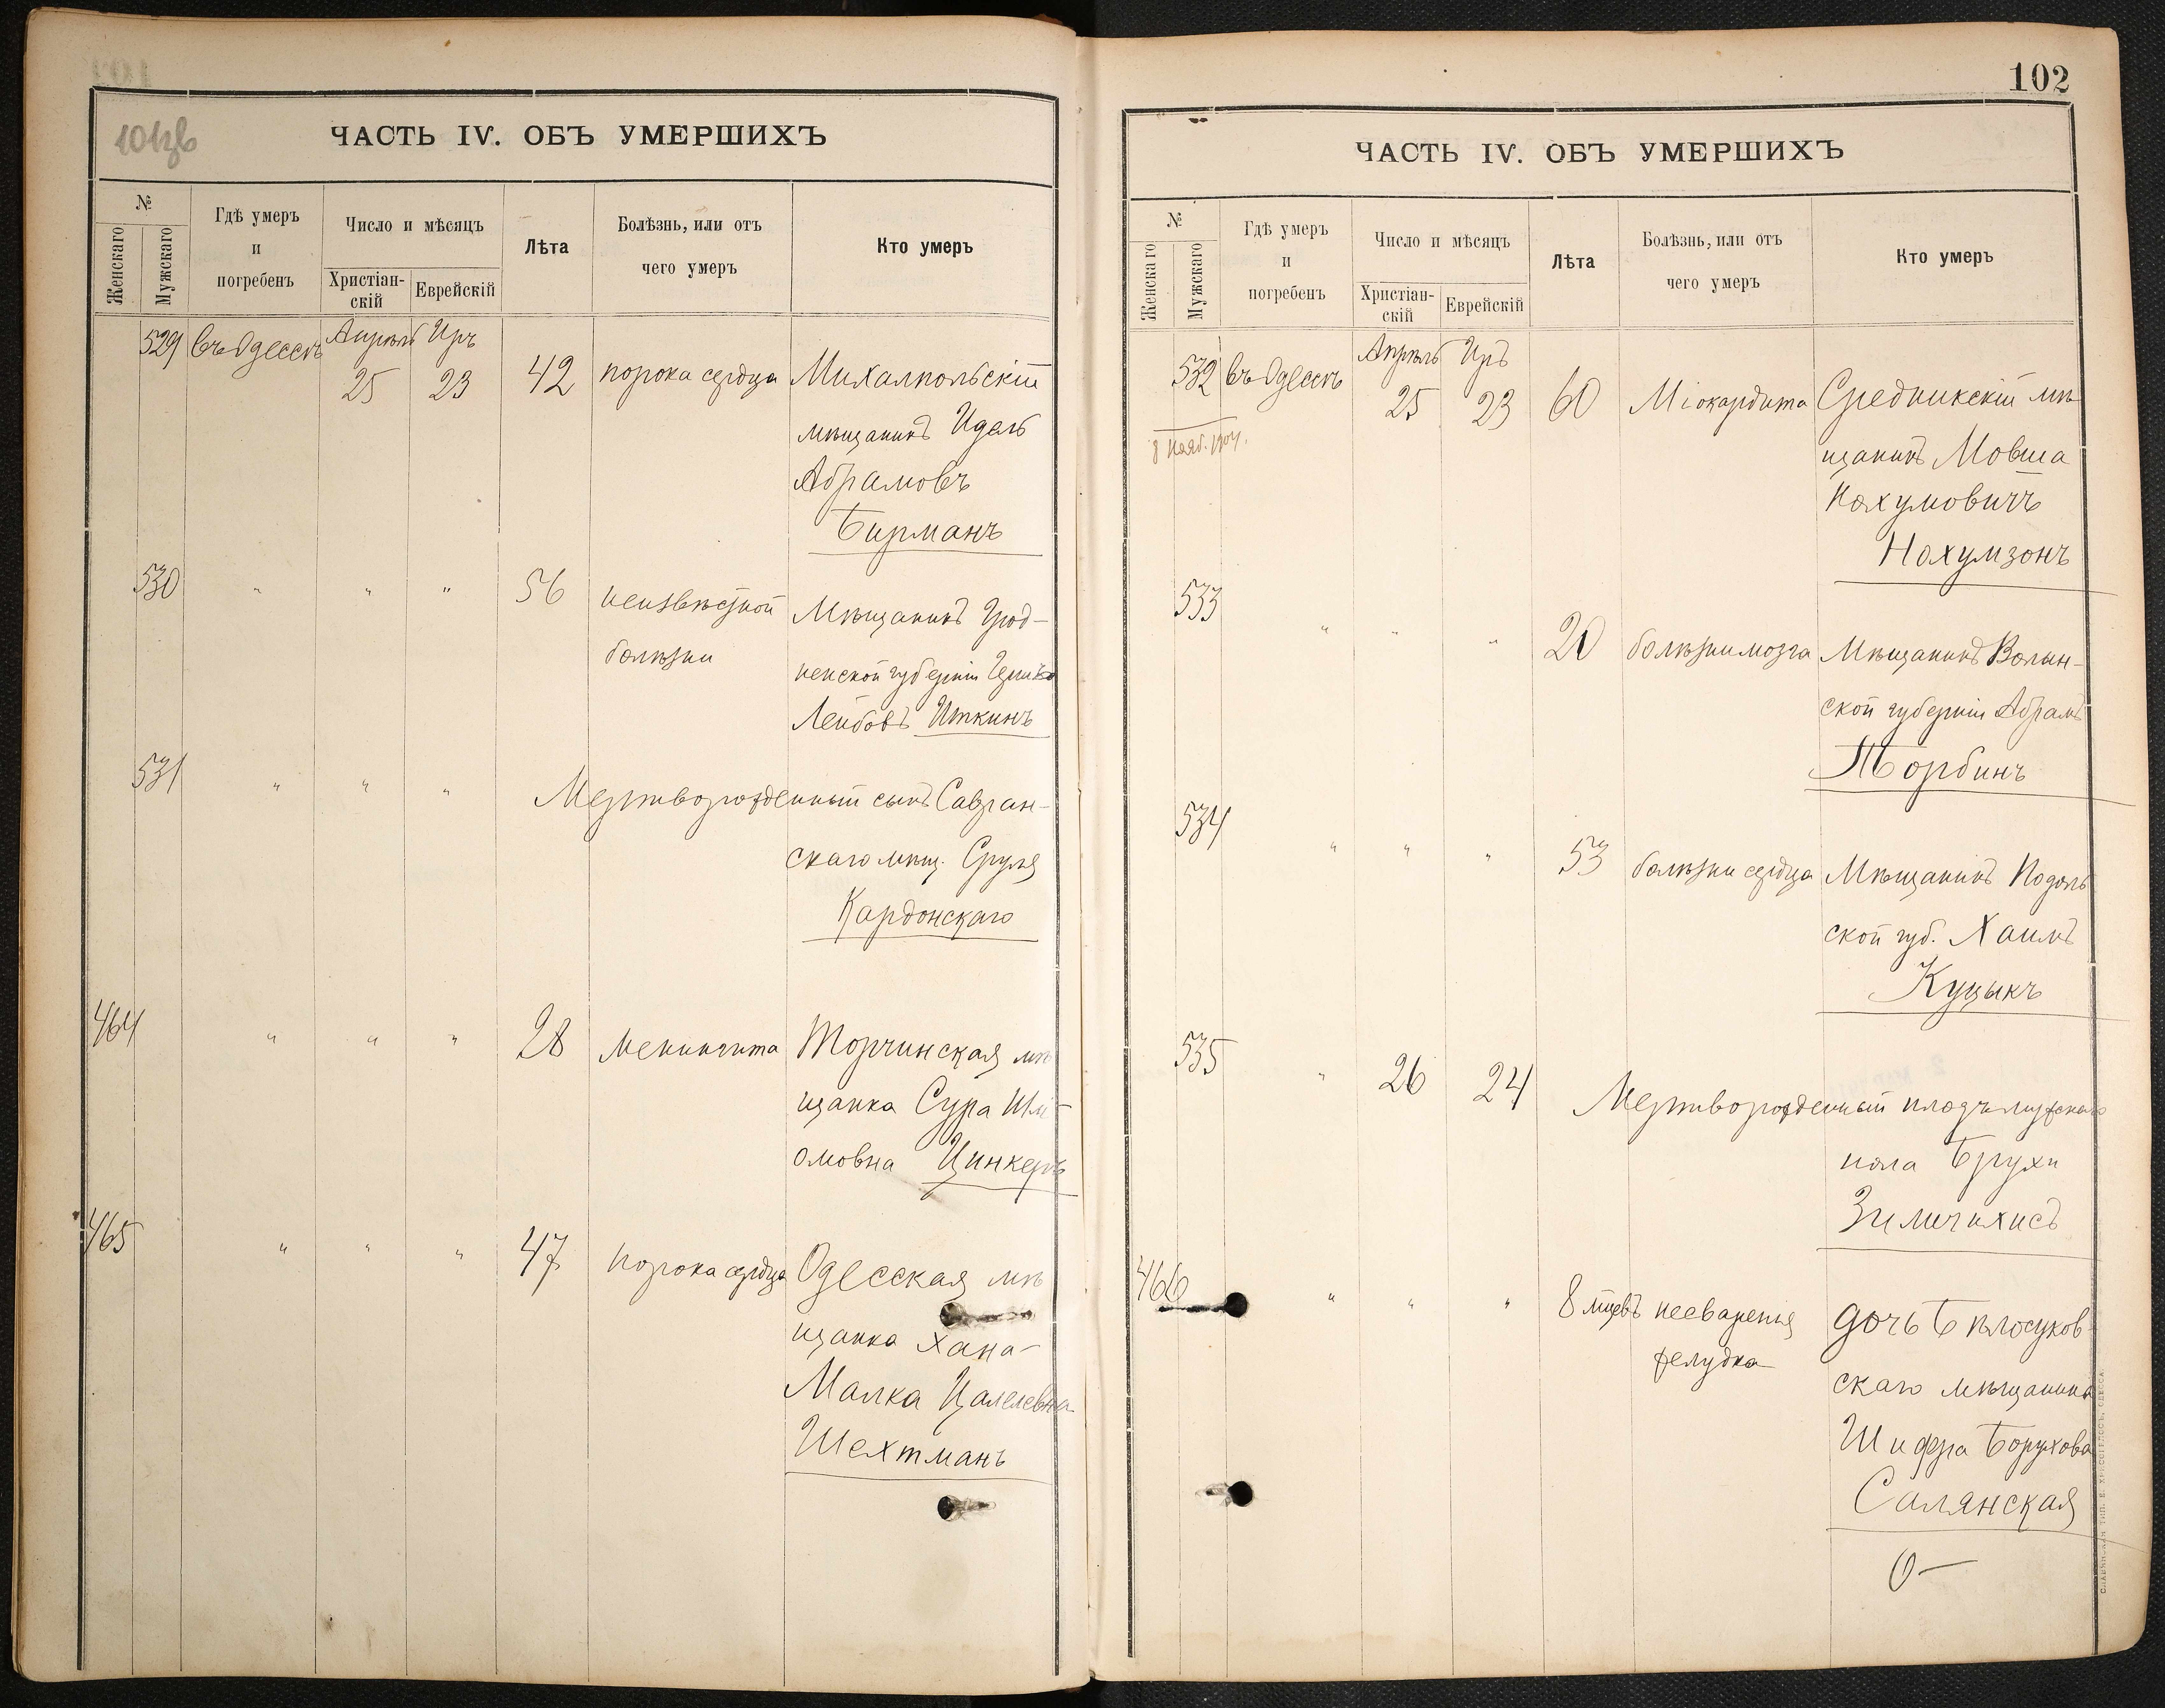 101зв
ЧАСТЬ IV. ОБЪ УМЕРШИХЪ
№
Женскаго
Мужскаго
Гдѣ умеръ
и
погребенъ
Число и мѣсяцъ
Христіан-
скій
Еврейскій
Лѣта
Болѣзнь, или отъ
чего умеръ
Кто умеръ
529 въ Одессѣ Апрѣль Иръ
25 23 42 порока сердца Михалпольскій
мѣщанинъ Идель
Абрамовъ
Бирманъ
530 " " " 56 неизвѣстной Мѣщанинъ Грод-
болѣзни ненской губерніи
Лейбовъ Иткинъ
531 " " " Мертворожденный сынъ Савран-
скаго мѣщ. Сруля
Кардонскаго
464 " " " 28 Менингита Торчинская мѣ
щанка Сура Шлі-
омовна Цинкеръ
465 " " " 47 порока сердца Одесская мѣ
щанка Хана-
Малка Цалелевна
Шехтманъ
102
ЧАСТЬ IV. ОБЪ УМЕРШИХЪ
№
Женскаго
Мужскаго
Гдѣ умеръ
и
погребенъ
Число и мѣсяцъ
Христіан-
скій
Еврейскій
Лѣта
Болѣзнь, или отъ
чего умеръ
Кто умеръ
532 въ Одессѣ Апрѣль Иръ
25 23 60 Міокардита Средникскій мѣ
щанинъ Мовша
8 Нояб. 1904. Нахумовичъ
Нахумзонъ
533 " " " 20 болѣзни мозга Мѣщанинъ Волын-
ской губерніи Абрамъ
Торбинъ
534 " " " 53 болѣзни сердца Мѣщанинъ Подоль
ской губ. Хаимъ
Куцыкъ
535 " 26 24 Мертворожденный плодъ мужскаго
пола Брухи
Зиличихисъ
466 " " " 8 мцевъ несваренія дочь Бѣлоцуков-
желудка скаго мѣщанина
Шифра Борухова
Салянская
СЛАВЯНСКАЯ ТИП. Е. ХРИСОГЕЛОСЪ, ОДЕССА